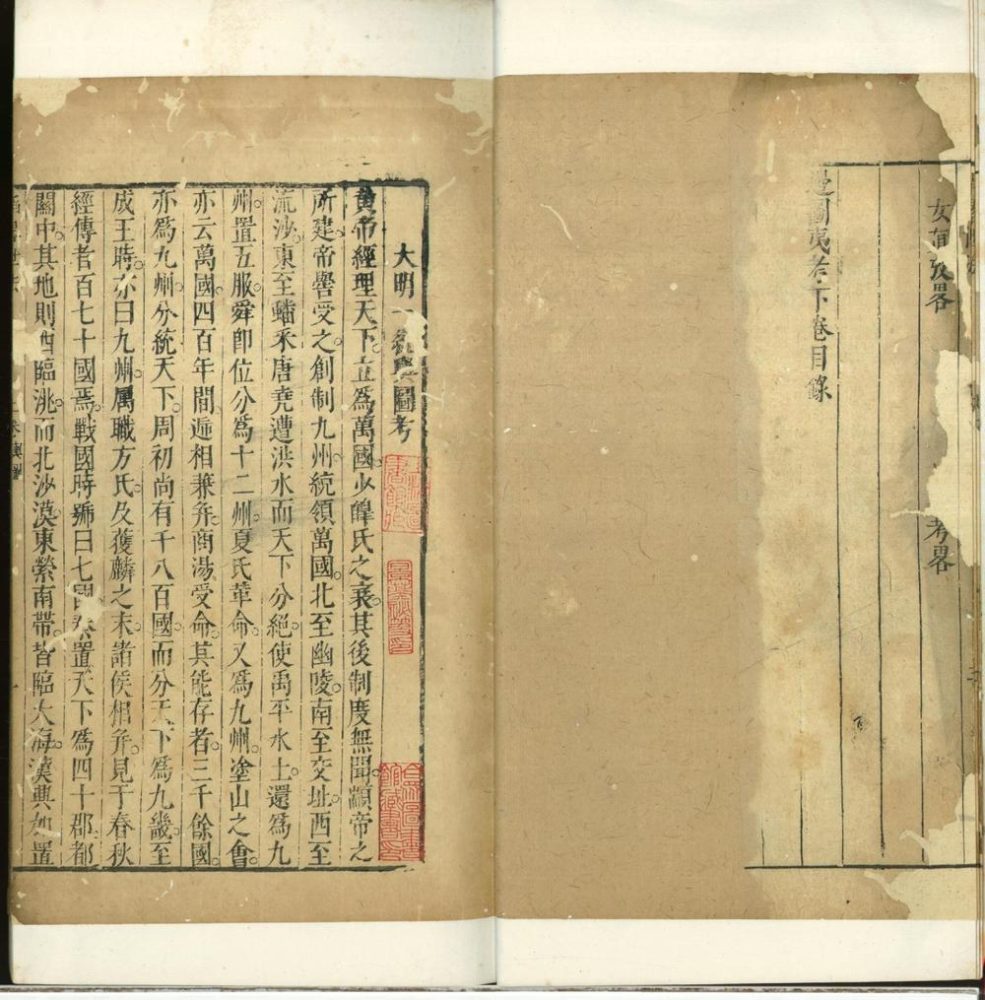 女直攷畧
考畧
邊圉夷考下卷目錄
大明一統輿圖考
黃帝經理天下立為萬國少皥氏之衰其後制度無聞顓帝之
所建帝嚳受之創制九州統領萬國北至幽陵南至交址西至
流沙東至蟠釆唐堯遭洪水而天下分絕使禹平水土還為九
州置五服舜即位分為十二州夏氏革命又為九州塗山之會
亦云萬國四百年間遞相兼并商湯受命其能存者三千餘國
亦為九州分統天下周初尚有千八百國而分天下為九畿至
成王時亦曰九州属職方氏及獲麟之末諸侯相并見于春秋
經傳者百七十國焉戰國時號曰七國秦置天下為四十郡都
關中其地則西臨洮而北沙漠東縈南帶皆臨大海漢興加置